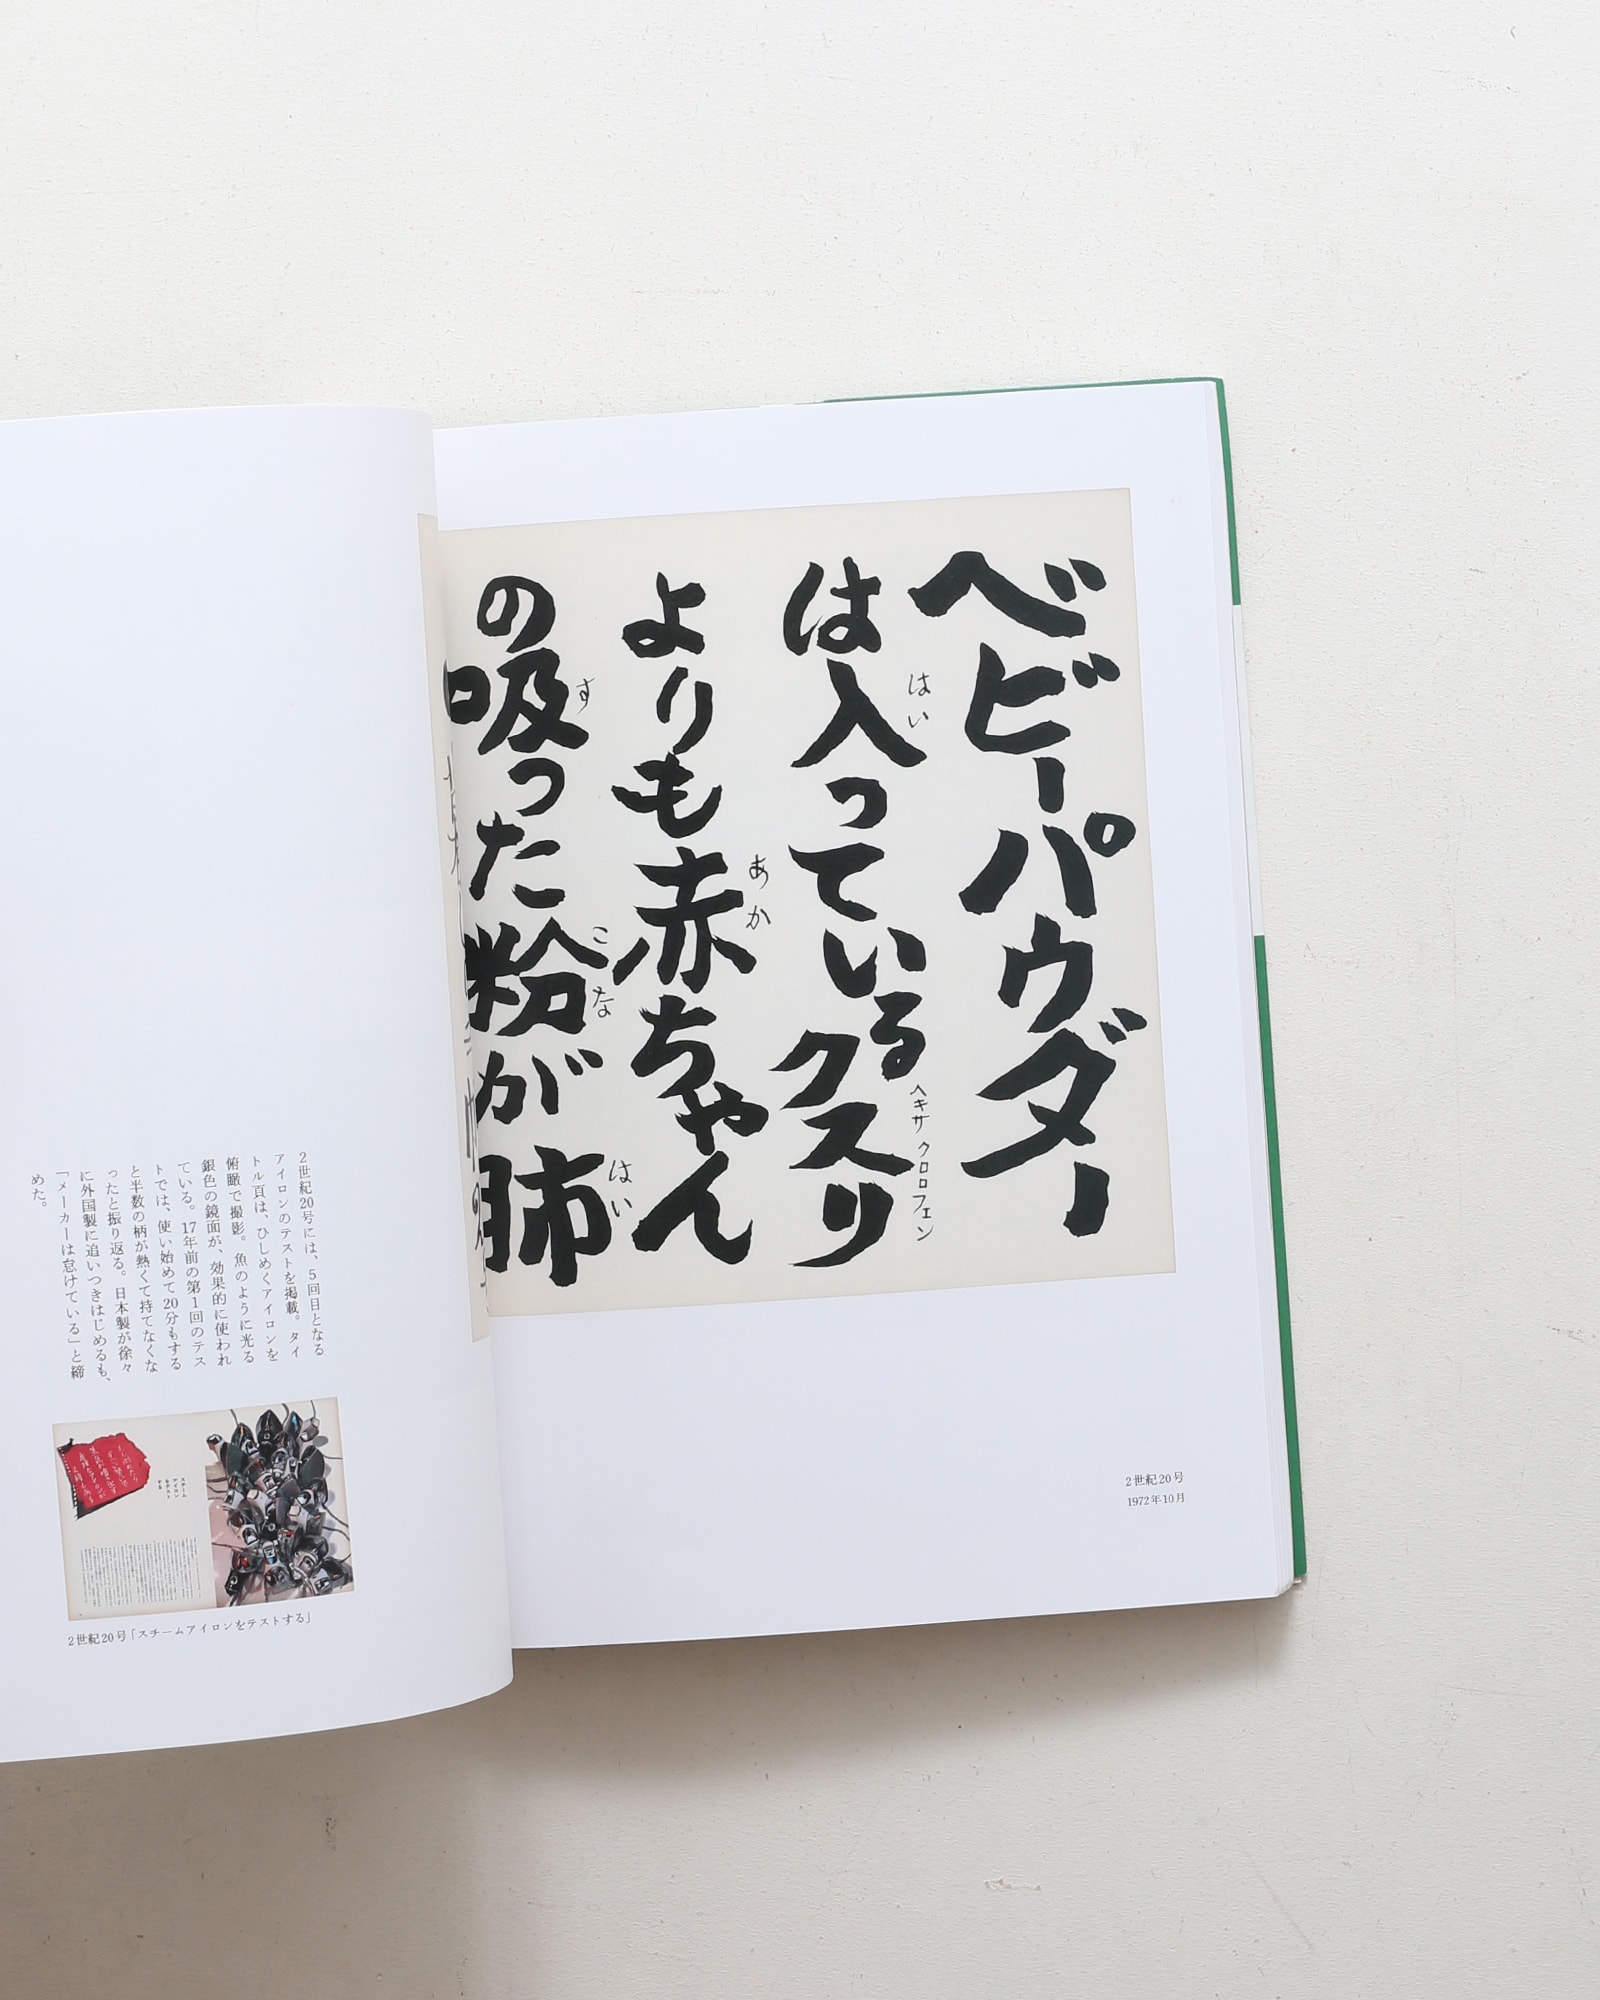 ベビーパウダー
は入っているクスリ
はい
ヘキサクロロフェン
よりも赤ちゃん
あか
の吸った粉が肺
す
こな
はい
2世紀20号
1972年10月
2世紀20号には、5回目となる
アイロンのテストを掲載。タイ
トル頁は、ひしめくアイロンを
俯瞰で撮影。魚のように光る
銀色の鏡面が、効果的に使われ
ている。17年前の第1回のテス
トでは、使い始めて20分もする
と半数の柄が熱くて持てなくな
ったと振り返る。日本製が徐々
に外国製に追いつきはじめるも、
「メーカーは怠けている」と締
めた。
スチーム
アイロン
をテスト
する
2世紀20号「スチームアイロンをテストする」